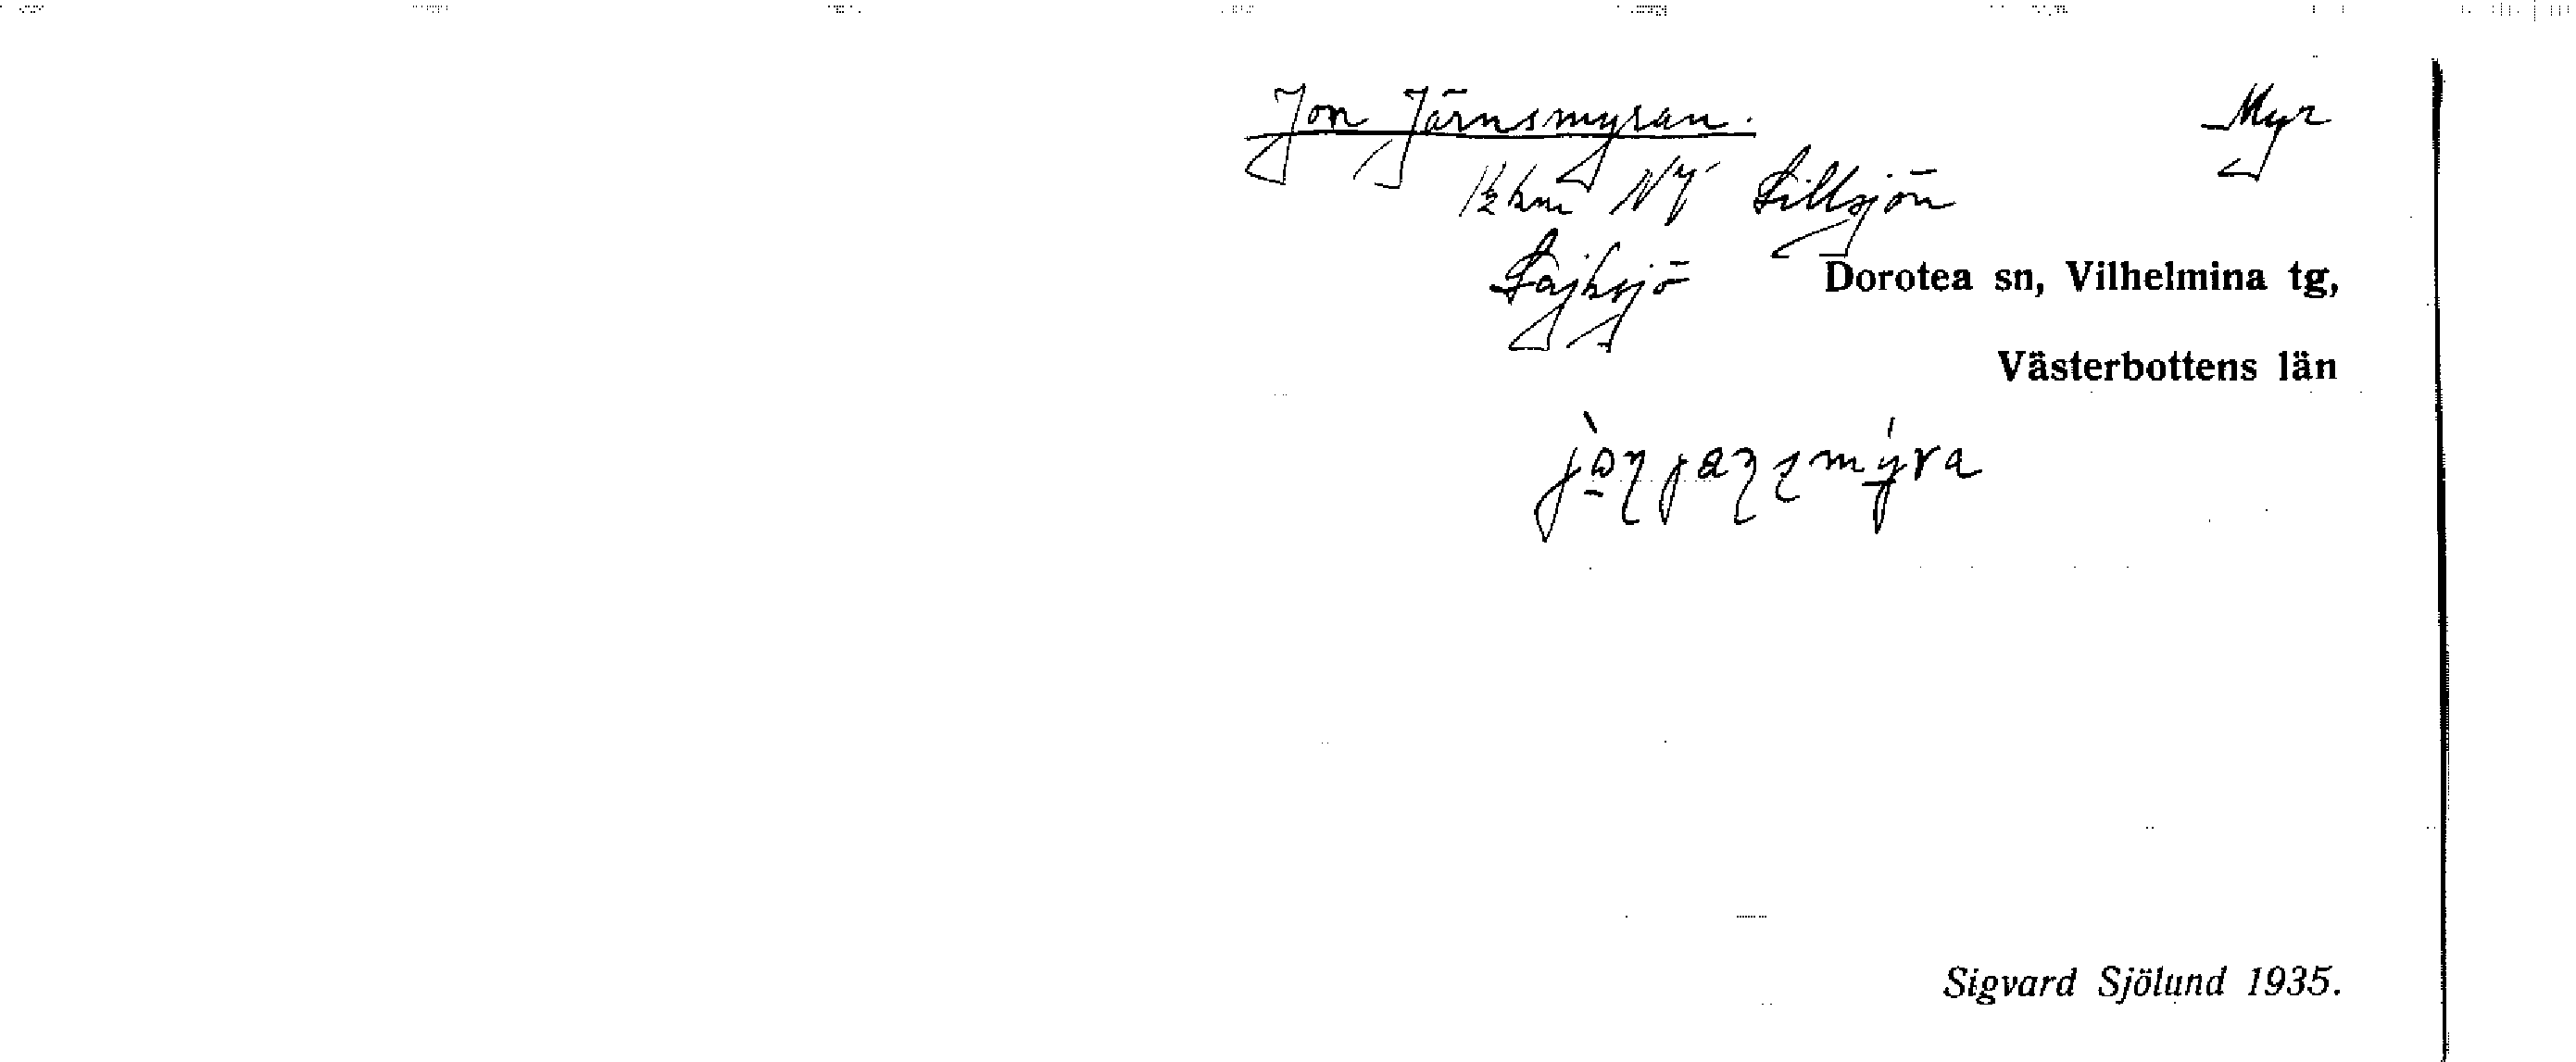 Jon Järnsmyran. Myr
1½ km NV Lillsjön
Lajksjö Dorotea sn, Vilhelmina tg,
Västerbottens län
Sigvard Sjölund 1935.